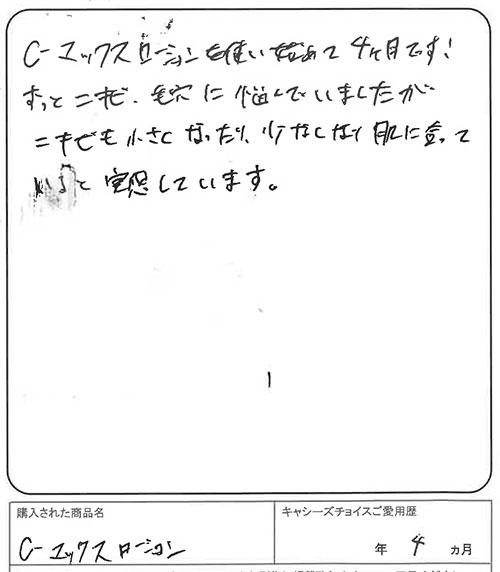 C-エックスローションを使い始めて4ヶ月です!
ずっとニキビ、毛穴に悩んでいましたが
ニキビも小さくなったり、少なくなり肌に合って
いると実感しています。
購入された商品名
キャシーズチョイスご愛用歴
C-エックスローション
年 4 カ月